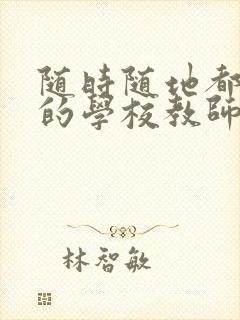 随時随地都
的學校教師
林智敏